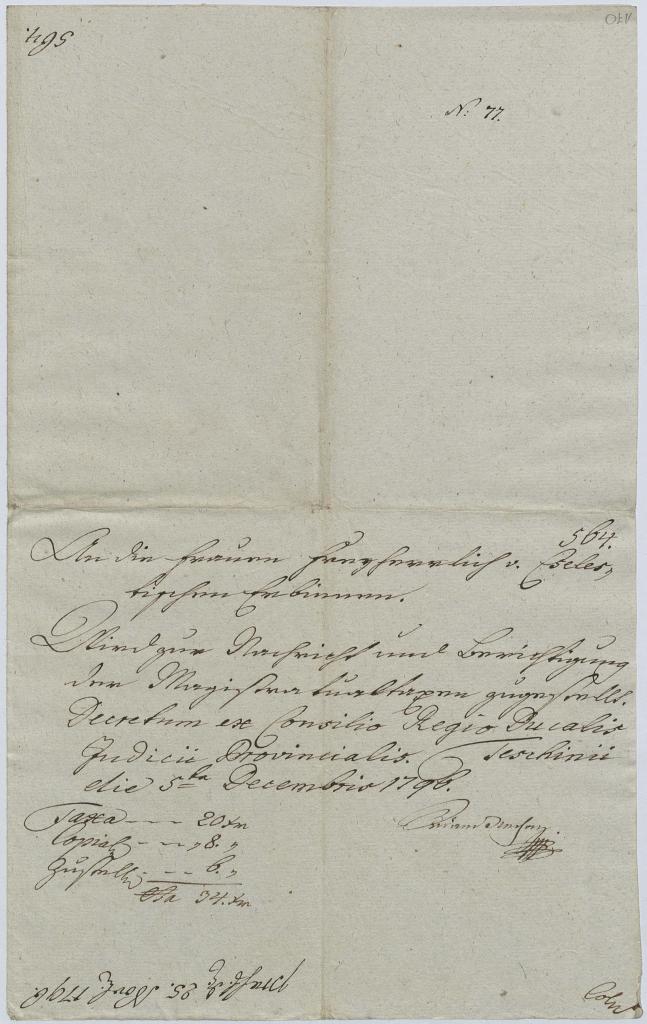 564.
No: 77.
564.
An die Frauen Freyherrlich v. Czeles,,
tischen Erbinnen.
Wird zur Nachricht und Berichtigung
der Magistratualtaxen zugestellt.
Decretum ex Consilio Regio Ducalis
Judicii Provincialis. Teschinii
die 5ta Decembris 1796.
Taxa --- 20 xr
Copial --- „ 8. „
Zustell --- 6. „
34. xr
25. 1796.